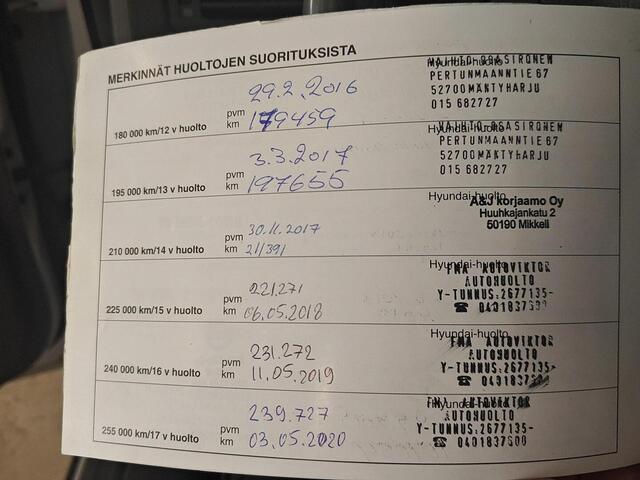 MERKINNÄT HUOLTOJEN SUORITUKSISTA
180 000 km/12 v huolto
pvm 29.2.2016
km 179459
Hyundai-huolto
PERTUNMAANNTIE 67
52700 MÄNTYHARJU
015 682727
195 000 km/13 v huolto
pvm 3.3.2017
km 197655
Hyundai-huolto
PERTUNMAANNTIE 67
52700 MÄNTYHARJU
015 682727
210 000 km/14 v huolto
pvm 30.11.2017
km 211391
Hyundai-huolto
A&J korjaamo Oy
Huuhkajankatu 2
50190 Mikkeli
225 000 km/15 v huolto
pvm 221.271
km 06.05.2018
Hyundai-huolto
FMA AUTOVIKTOR
AUTOHUOLTO
Y-TUNNUS:2677135-
☎ 0401837500
240 000 km/16 v huolto
pvm 231.272
km 11.05.2019
Hyundai-huolto
FMA AUTOVIKTOR
AUTOHUOLTO
Y-TUNNUS:2677135-
☎
255 000 km/17 v huolto
pvm 239.727
km 03.05.2020
Hyundai-huolto
AUTOVIKTOR
AUTOHUOLTO
Y-TUNNUS:2677135-
☎ 0401837500